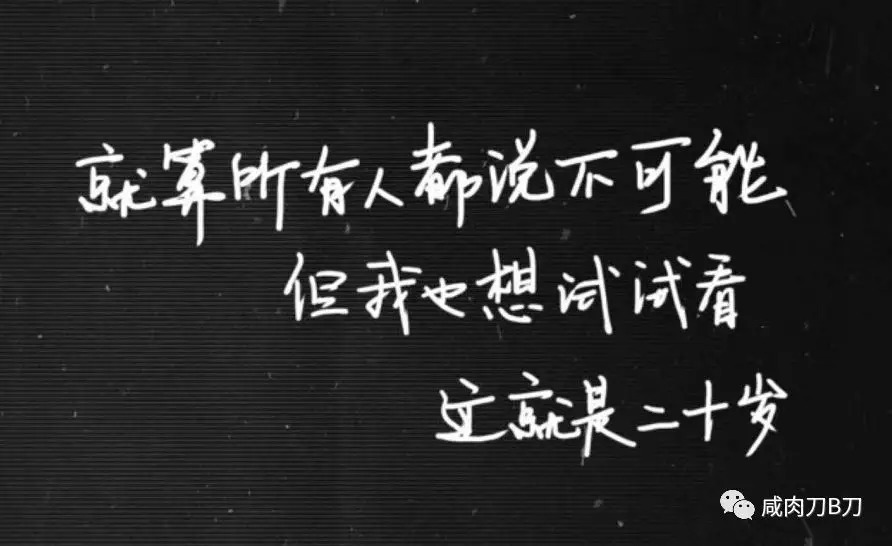 就算所有人都说不可能
但我也想试试看
这就是二十岁
咸肉刀B刀